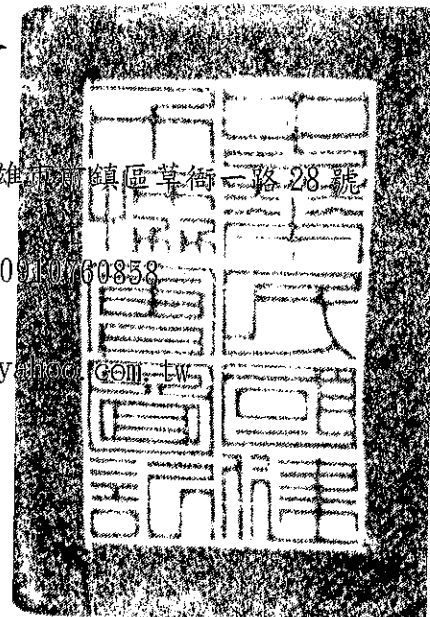 雄市前鎮區草衙一路 28 號
0910760858
yahoo.com.tw
中華民國
會圖記